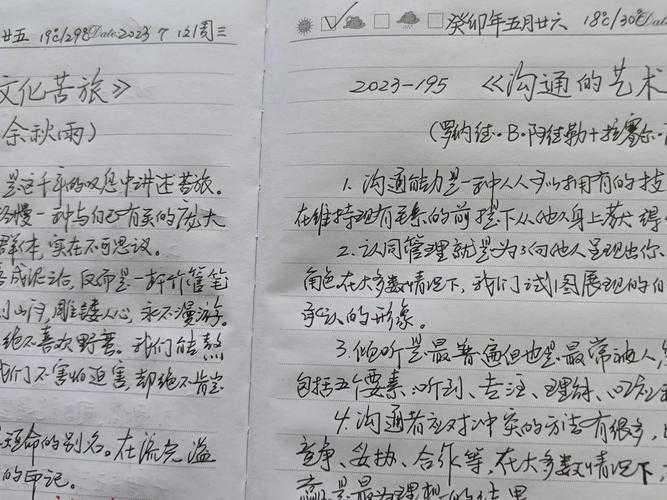 廿五 19℃/29℃ Date 2023 7 12/周三
文化苦旅》
余秋雨)
群体,实在不可思议。
山河,雕镂人心,永不漫游。
绝不喜欢野蛮。我们能熬
我们不害怕迫害,却绝不肯
命的别名。在流完滥
的印记。
癸卯年五月廿六 18℃/30℃ Dat
2023-195 《沟通的艺术
(罗纳德·B·阿德勒+拉赛尔·
1. 沟通能力是一种人人可以拥有的技
在维持现有关系的前提下从他人身上获得
2. 认同管理就是为了向他人呈现出你、
角色在大多数情况下,我们试图展现的自
承认的形象。
3. 倾听是最普遍但也是最常被人忽
包括五个要素:听到、专注、理解、回应
4. 沟通者应对冲突的方法有很多,
竞争、妥协、合作等,在大多数情况下
是最为理想的结果